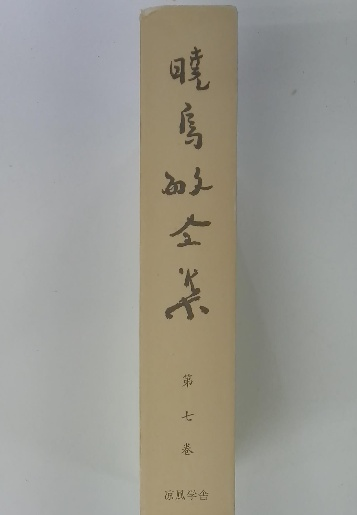 暁烏敏全集
第七巻
涼風学舎